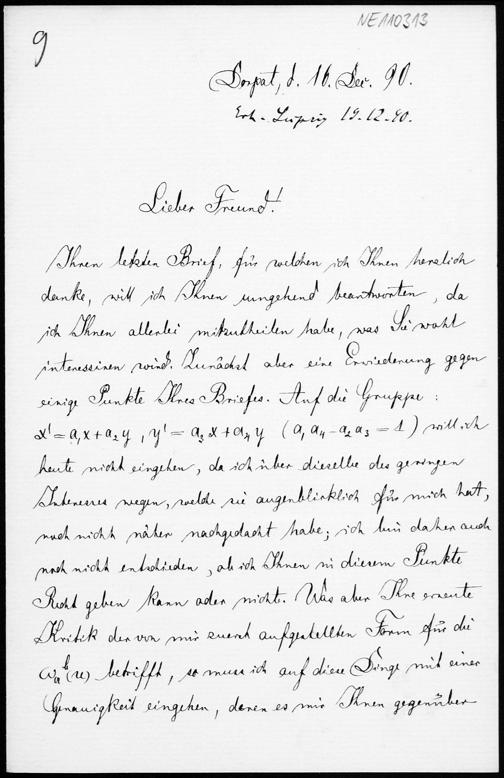 NE110313
9
Dorpat, d. 16. Dec. 90.
Erh. Leipzig 19.12.90.
Lieber Freund!
Ihren letzten Brief, für welchen ich Ihnen herzlich
danke, will ich Ihnen umgehend beantworten, da
ich Ihnen allerlei mitzutheilen habe, was Sie wohl
interessiren wird. Zunächst aber eine Erwiederung gegen
einige Punkte Ihres Briefes. Auf die Gruppe:
x' = a₁x + a₂y , y' = a₃x + a₄y (a₁a₄ - a₂a₃ = 1) will ich
heute nicht eingehen, da ich über dieselbe des geringen
Interesses wegen, welche sie augenblicklich für mich hat,
noch nicht näher nachgedacht habe; ich bin daher auch
noch nicht entschieden, ob ich Ihnen in diesem Punkte
Recht geben kann oder nicht. Was aber Ihre erneute
Kritik der von mir zuerst aufgestellten Form für die
betrifft, so muss ich auf diese Dinge mit einer
Genauigkeit eingehen, deren es mir Ihnen gegenüber